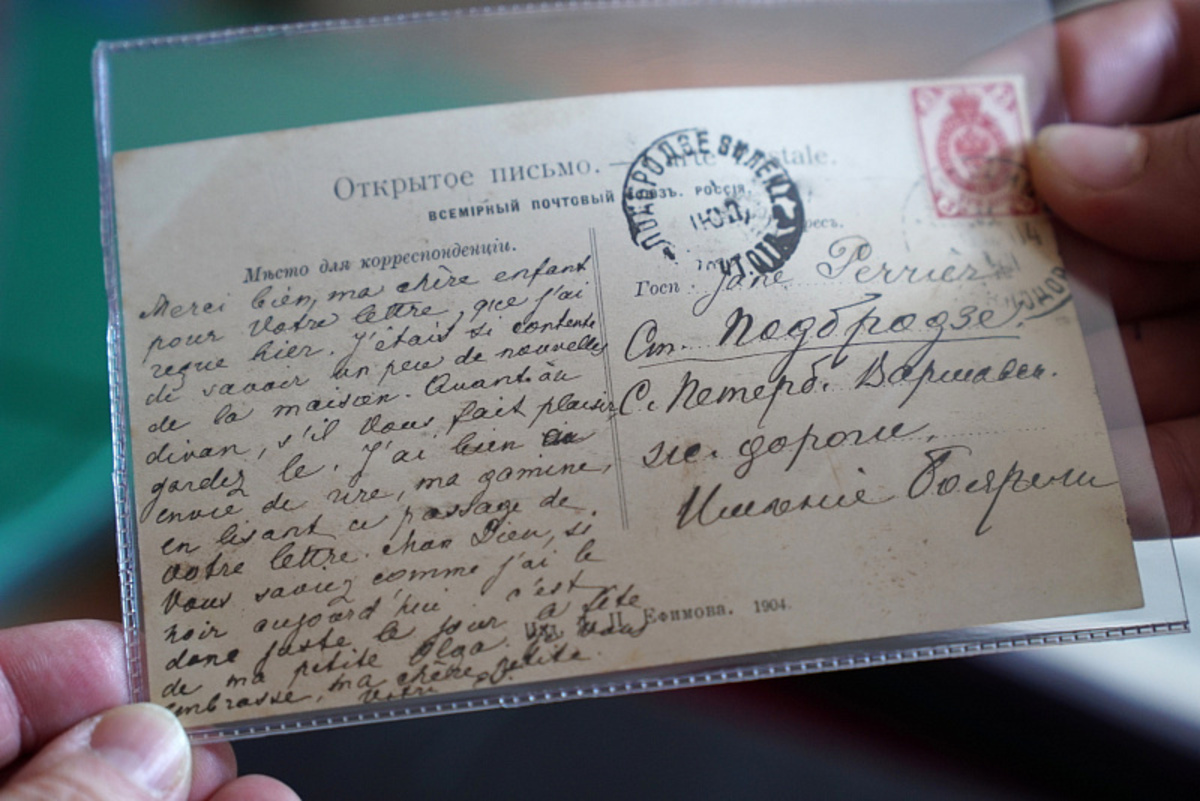 Открытое письмо. — Carte postale.
ВСЕМІРНЫЙ ПОЧТОВЫЙ СОЮЗЪ. РОССІЯ.
Мѣсто для корреспонденціи.
Merci bien, ma chère enfant
pour votre lettre, que j'ai
reçue hier. J'étais si contente
de savoir un peu de nouvelles
de la maison. Quant au
divan, s'il vous fait plaisir,
gardez le. J'ai bien
envie de rire, ma gamine,
en lisant ce passage de
votre lettre. Mon Dieu, si
vous saviez comme j'ai le
noir aujourd'hui c'est
donc juste le jour de la fête
de ma petite Olga. Vous
embrasse, ma chère petite.
Votre
ПОДБРОДЗЕ ВИЛЕНС.
Госп. Jane Perrier
Ст. Подбродзе.
С. Петерб. Варшавск.
ж. дороги,
Имѣніе Боярели
Ефимова. 1904.
14